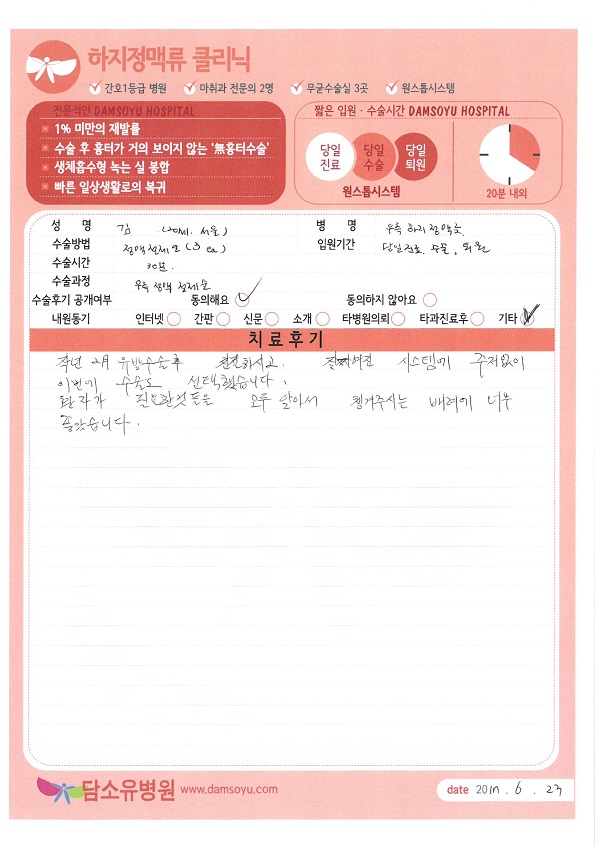 하지정맥류 클리닉
간호1등급 병원 마취과 전문의 2명 무균수술실 3곳 원스톱시스템
전문적인 DAMSOYU HOSPITAL
1% 미만의 재발률
수술 후 흉터가 거의 보이지 않는 '無흉터수술'
생체흡수형 녹는 실 봉합
빠른 일상생활로의 복귀
짧은 입원·수술시간 DAMSOYU HOSPITAL
당일 진료 당일 수술 당일 퇴원
원스톱시스템
20분 내외
성 명 김 (20세. 서울) 병 명 우측 하지정맥류
수술방법 정맥절제술 (3 ea) 입원기간 당일진료. 수술, 퇴원
수술시간 30분.
수술과정 우측 정맥 절제술
수술후기 공개여부 동의해요 동의하지 않아요
내원동기 인터넷 간판 신문 소개 타병원의뢰 타과진료후 기타
치료후기
작년 2월 유방수술 후 친절하시고. 시스템에 주저없이
이번에 수술도 선택했습니다.
환자가 필요한것들을 모두 알아서 챙겨주시는 배려에 너무
좋았습니다.
담소유병원 www.damsoyu.com
date 2017. 6. 23